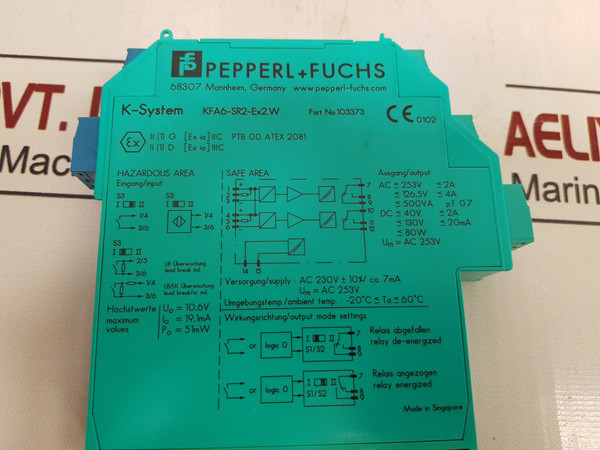 PEPPERL+FUCHS
68307 Mannheim, Germany www.pepperl-fuchs.com
K-System KFA6-SR2-Ex2.W Part No.103373 CE 0102
Ex II (1) G [Ex ia] IIC PTB 00 ATEX 2081
II (1) D [Ex ia] IIIC
HAZARDOUS AREA
Eingang/input
S3 S3
I II I II
1/4 1/4
3/6 3/6
S3
I II
2/5 LB Überwachung
3/6 lead break ind.
1/4 LB/LK Überwachung
3/6 lead break/sc ind.
Höchstwerte
maximum
values
U₀ = 10,6V
I₀ = 19,1mA
P₀ = 51mW
SAFE AREA
1 2 3 4 5 6
7 8 9 10 11 12
14 15
Ausgang/output
AC ≤ 253V ≤ 2A
≤ 126.5V ≤ 4A
≤ 500VA p.f. 0.7
DC ≤ 40V ≤ 2A
≤ 130V ≤ 20mA
≤ 80W
Um = AC 253V
Versorgung/supply : AC 230V ± 10%/ ca 7mA
Um = AC 253V
Umgebungstemp./ambient temp. : -20°C ≤ Ta ≤ 60°C
Wirkungsrichtung/output mode settings
or logic 0 I II S1/S2 7 8 9
Relais abgefallen
relay de-energized
or logic 0 I II S1/S2 7 8 9
Relais angezogen
relay energized
Made in Singapore
PVT.
Mac
AELI
Marin